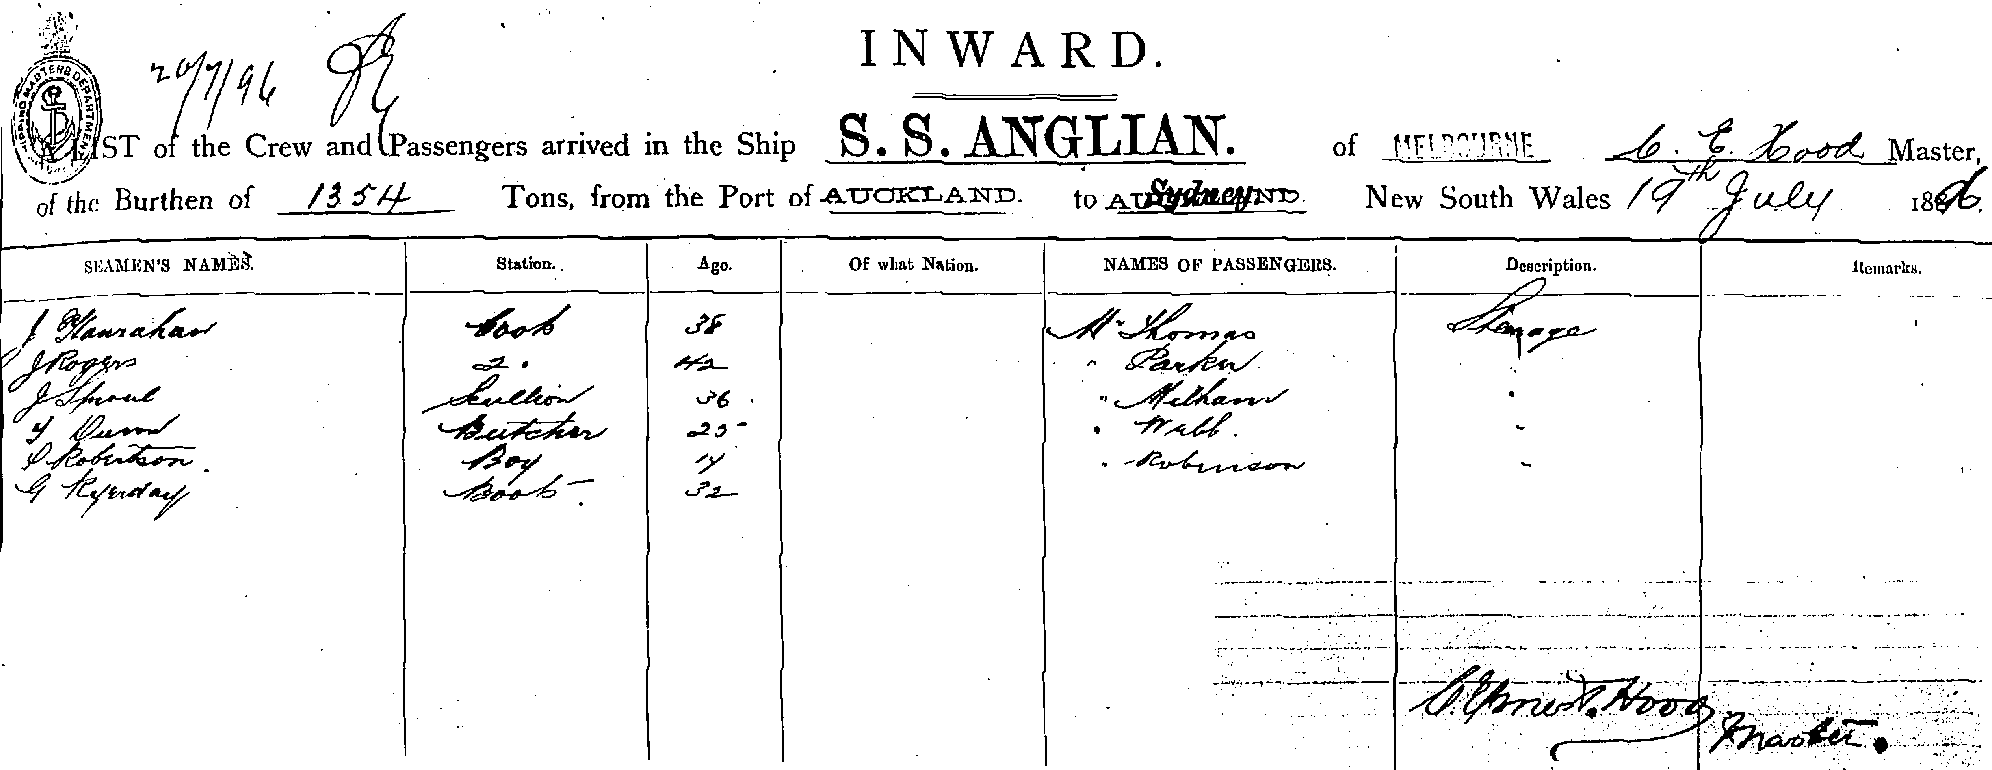 INWARD.
20/7/96
SHIPPING MASTERS DEPARTMENT
A LIST of the Crew and Passengers arrived in the Ship S. S. ANGLIAN. of MELBOURNE C. E. Hood Master,
of the Burthen of 1354 Tons, from the Port of AUCKLAND. to Sydney New South Wales 19th July 1896.
SEAMEN'S NAMES. Station. Age. Of what Nation. NAMES OF PASSENGERS. Description. Remarks.
J Hanrahan Cook 38 Mr Thomas Steerage
J Rogers 2. 42 " Parker "
J Sproul Scullion 36 " Melham "
Dunn Butcher 25 " Webb. "
Robertson. Boy 17 " Robinson "
G Kyerday Boots. 32
C. Ernest. Hood
Master.